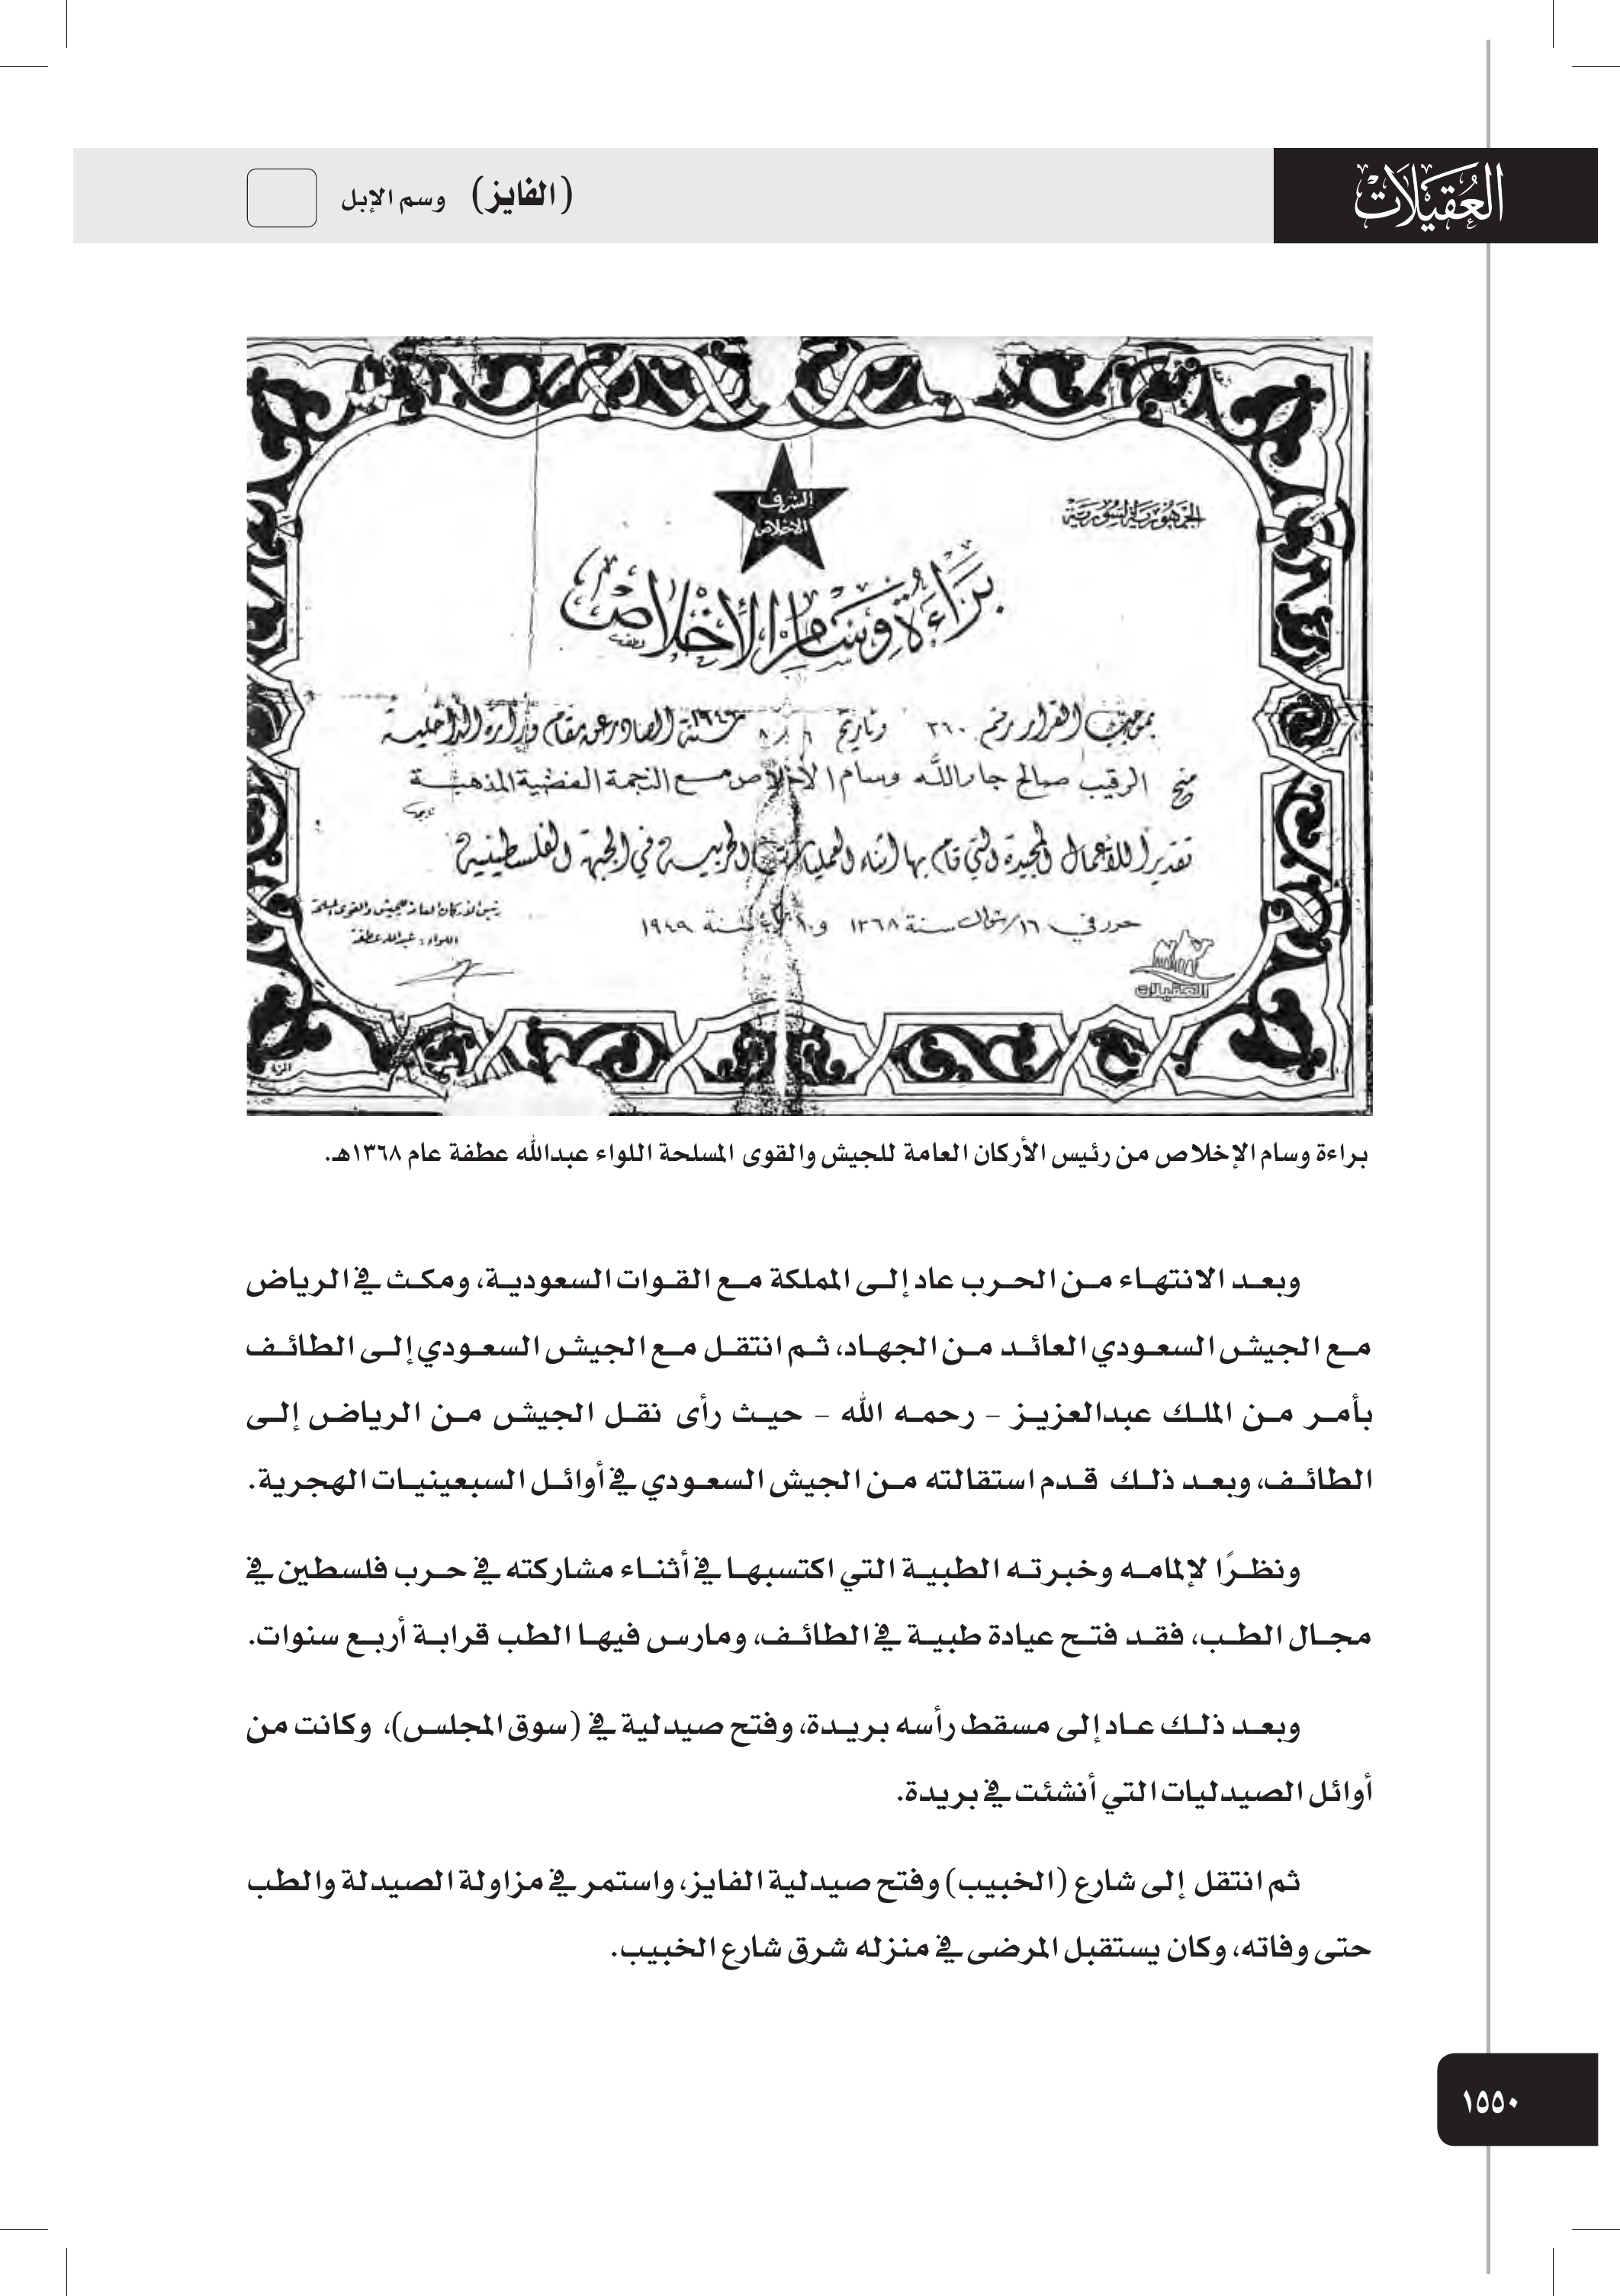 العُقيلات
(الفايز) وسم الإبل
الشرف
الإخلاص
الجمهورية السورية
براءة وسام الإخلاص
بموجب القرار رقم ٣٦٠ وتاريخ سنة ١٩٤٩ الصادر عن مقام وزارة الداخلية
منح الرقيب صالح جار الله وسام الاخلاص مع النجمة الفضية المذهبة
تقديراً للأعمال المجيدة التي قام بها أثناء العمليات الحربية في الجبهة الفلسطينية
حرر في ١٦/شوال سنة ١٣٦٨ و سنة ١٩٤٩
رئيس الأركان العامة للجيش والقوى المسلحة
اللواء: عبدالله عطفة
العقيلات
براءة وسام الإخلاص من رئيس الأركان العامة للجيش والقوى المسلحة اللواء عبدالله عطفة عام ١٣٦٨هـ.
وبعد الانتهاء من الحرب عاد إلى المملكة مع القوات السعودية، ومكث في الرياض
مع الجيش السعودي العائد من الجهاد، ثم انتقل مع الجيش السعودي إلى الطائف
بأمر من الملك عبدالعزيز – رحمه الله – حيث رأى نقل الجيش من الرياض إلى
الطائف، وبعد ذلك قدم استقالته من الجيش السعودي في أوائل السبعينيات الهجرية.
ونظرًا لإلمامه وخبرته الطبية التي اكتسبها في أثناء مشاركته في حرب فلسطين في
مجال الطب، فقد فتح عيادة طبية في الطائف، ومارس فيها الطب قرابة أربع سنوات.
وبعد ذلك عاد إلى مسقط رأسه بريدة، وفتح صيدلية في (سوق المجلس)، وكانت من
أوائل الصيدليات التي أنشئت في بريدة.
ثم انتقل إلى شارع (الخبيب) وفتح صيدلية الفايز، واستمر في مزاولة الصيدلة والطب
حتى وفاته، وكان يستقبل المرضى في منزله شرق شارع الخبيب.
١٥٥٠